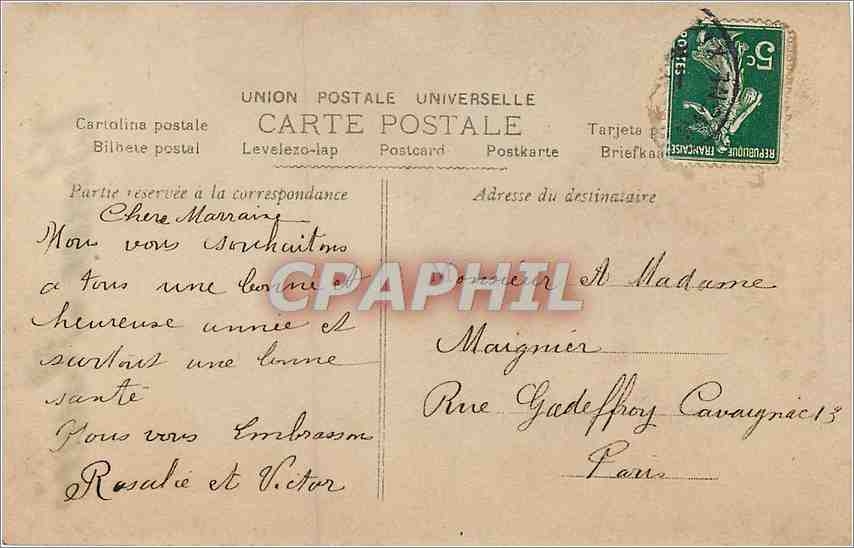 UNION POSTALE UNIVERSELLE
CARTE POSTALE
Cartolina postale
Bilhete postal
Levelezo-lap
Postcard
Postkarte
Tarjeta
5c
POSTES
REPUBLIQUE FRANÇAISE
Partie réservée à la correspondance
Adresse du destinataire
Chere Marraine
Nous vous souhaitons
a tous une bonne et
heureuse année et
surtout une bonne
santé
Nous vous Embrassons
Rosalie et Victor
Monsieur et Madame
Maignier
Rue Godeffroy Cavaignac 13
Paris
CPAPHIL